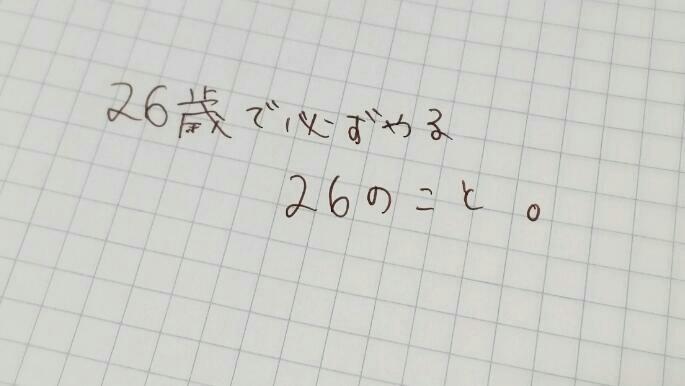 26歳で必ずやる
26のこと。